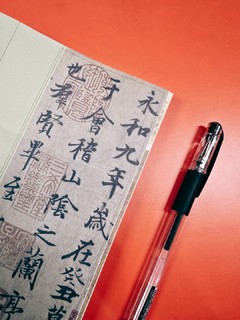 永和九年歲在癸丑
于會稽山陰之蘭亭
也羣賢畢至